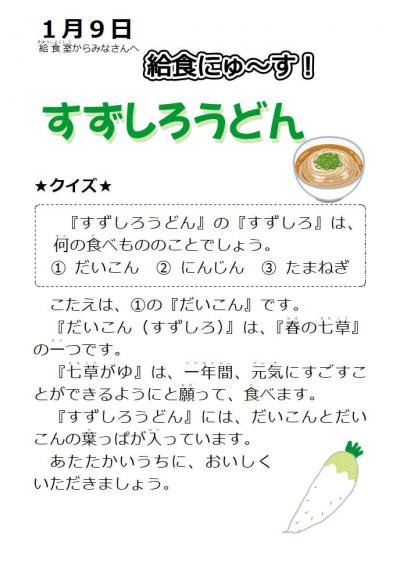 1月9日
給食室からみなさんへ
給食にゅ~す!
すずしろうどん
★クイズ★
『すずしろうどん』の『すずしろ』は、
何の食べもののことでしょう。
① だいこん ② にんじん ③ たまねぎ
こたえは、①の『だいこん』です。
『だいこん(すずしろ)は、『春の七草』
の一つです。
『七草がゆ』は、一年間、元気にすごすこ
とができるようにと願って、食べます。
『すずしろうどん』には、だいこんとだい
こんの葉っぱが入っています。
あたたかいうちに、おいしく
いただきましょう。